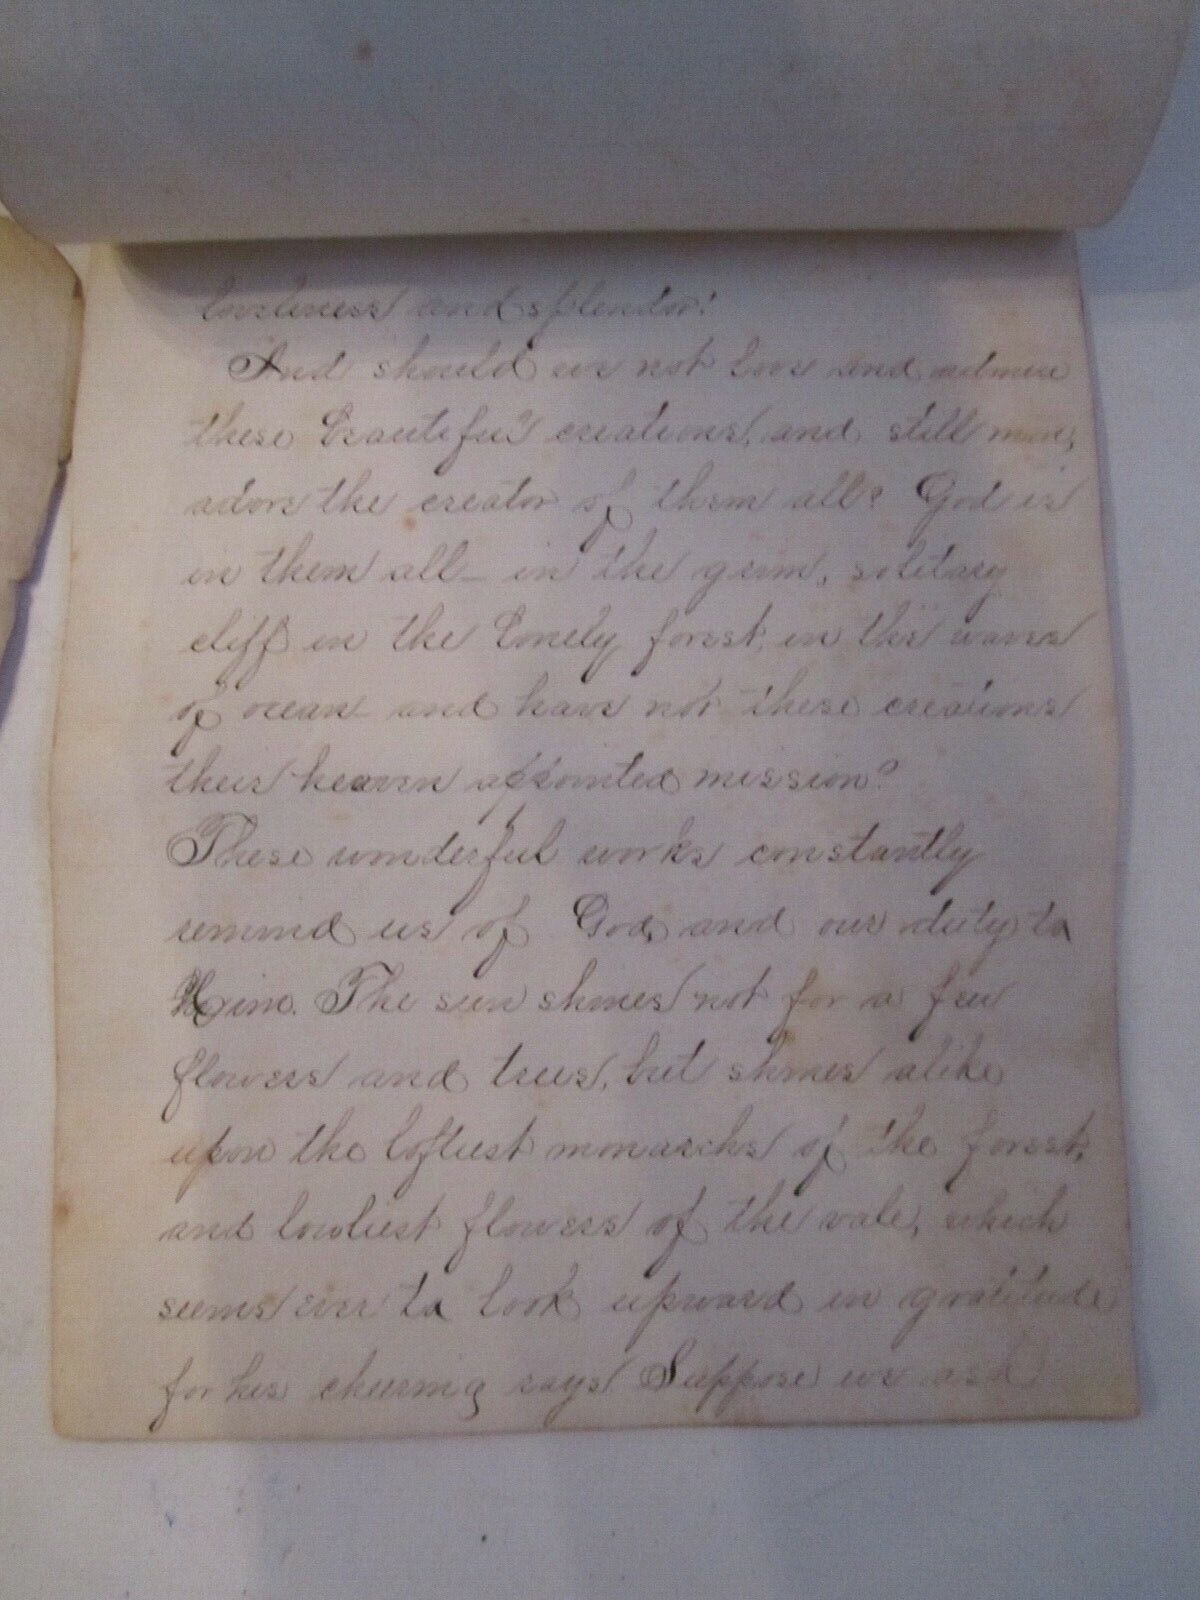 loveliness and splendor!
And should we not love and admire
these beautiful creations, and still more,
adore the creator of them all? God is
in them all— in the grim, solitary
cliff in the lonely forest, in the waves
of ocean— and have not these creations
their heaven appointed mission?
These wonderful works constantly
remind us of God, and our duty to
Him. The sun shines not for a few
flowers and trees, but shines alike
upon the loftiest monarchs of the forest,
and lowliest flowers of the vale, which
seems ever to look upward in gratitude
for his cheering rays Suppose we ask